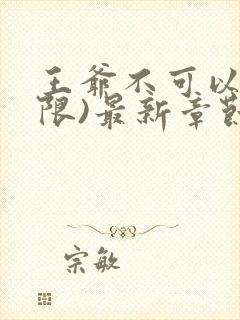 王爷不可以
限)最新章节
宗敏